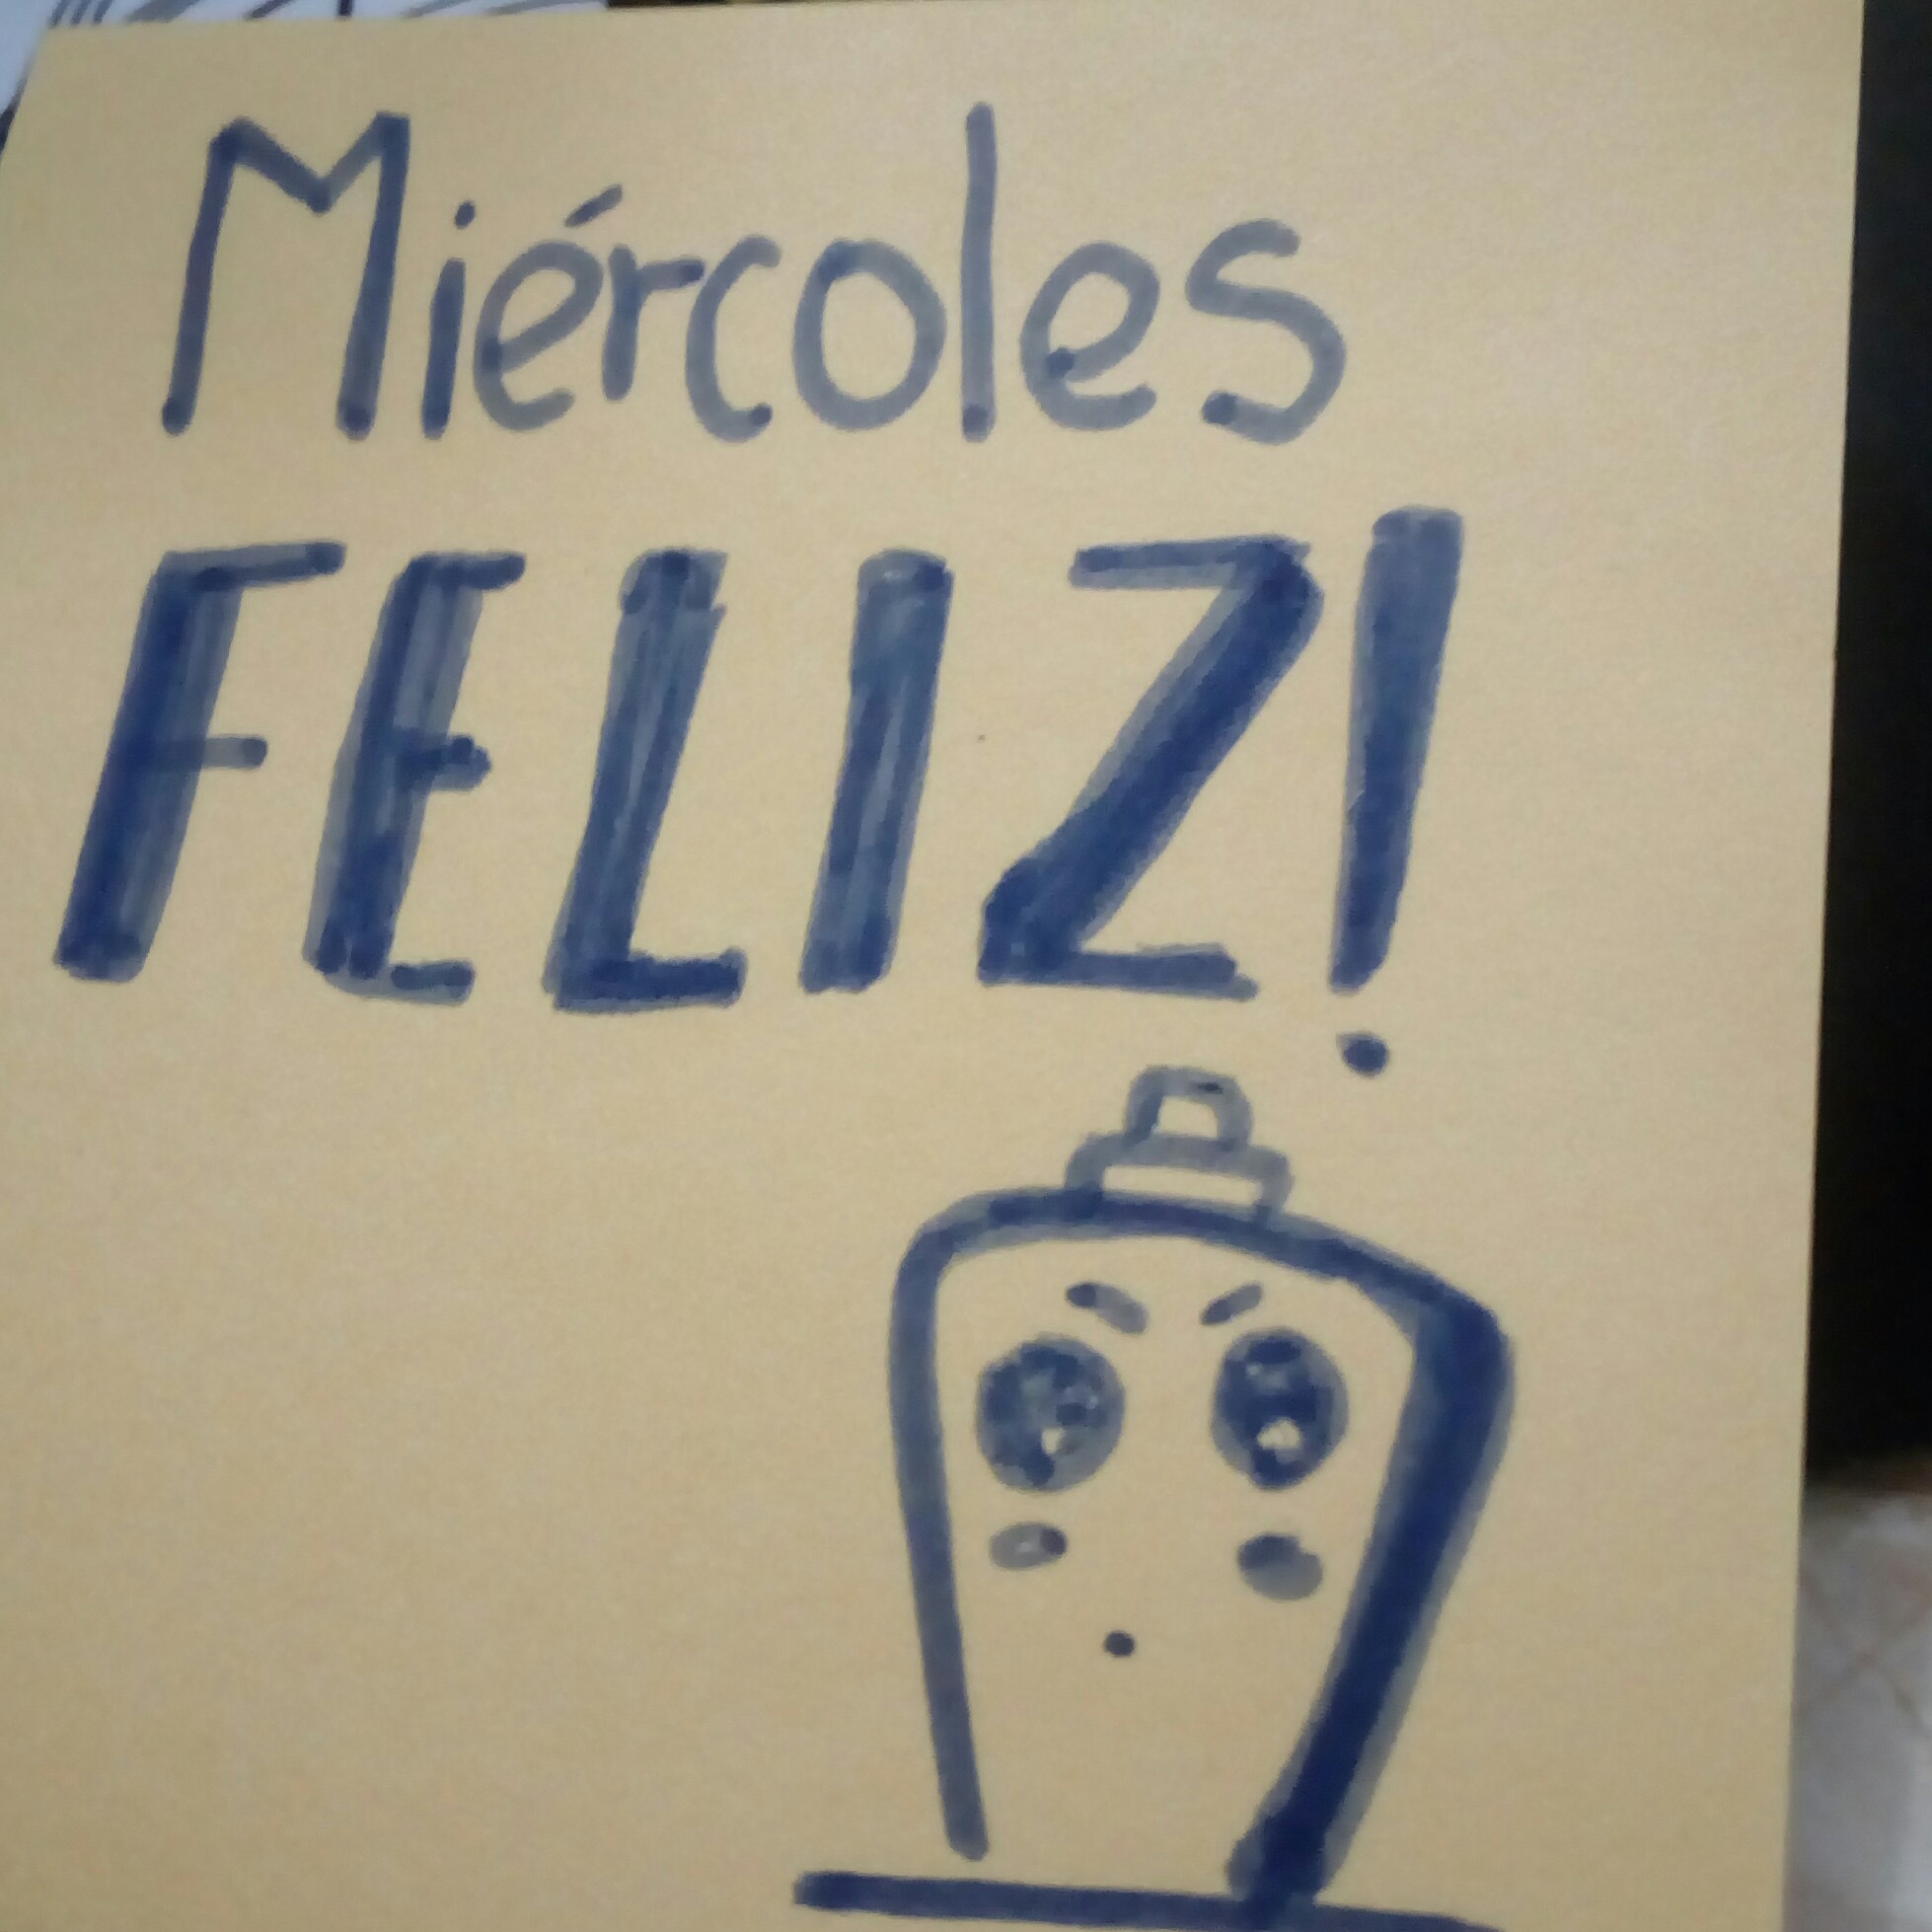 Miércoles
FELIZ!